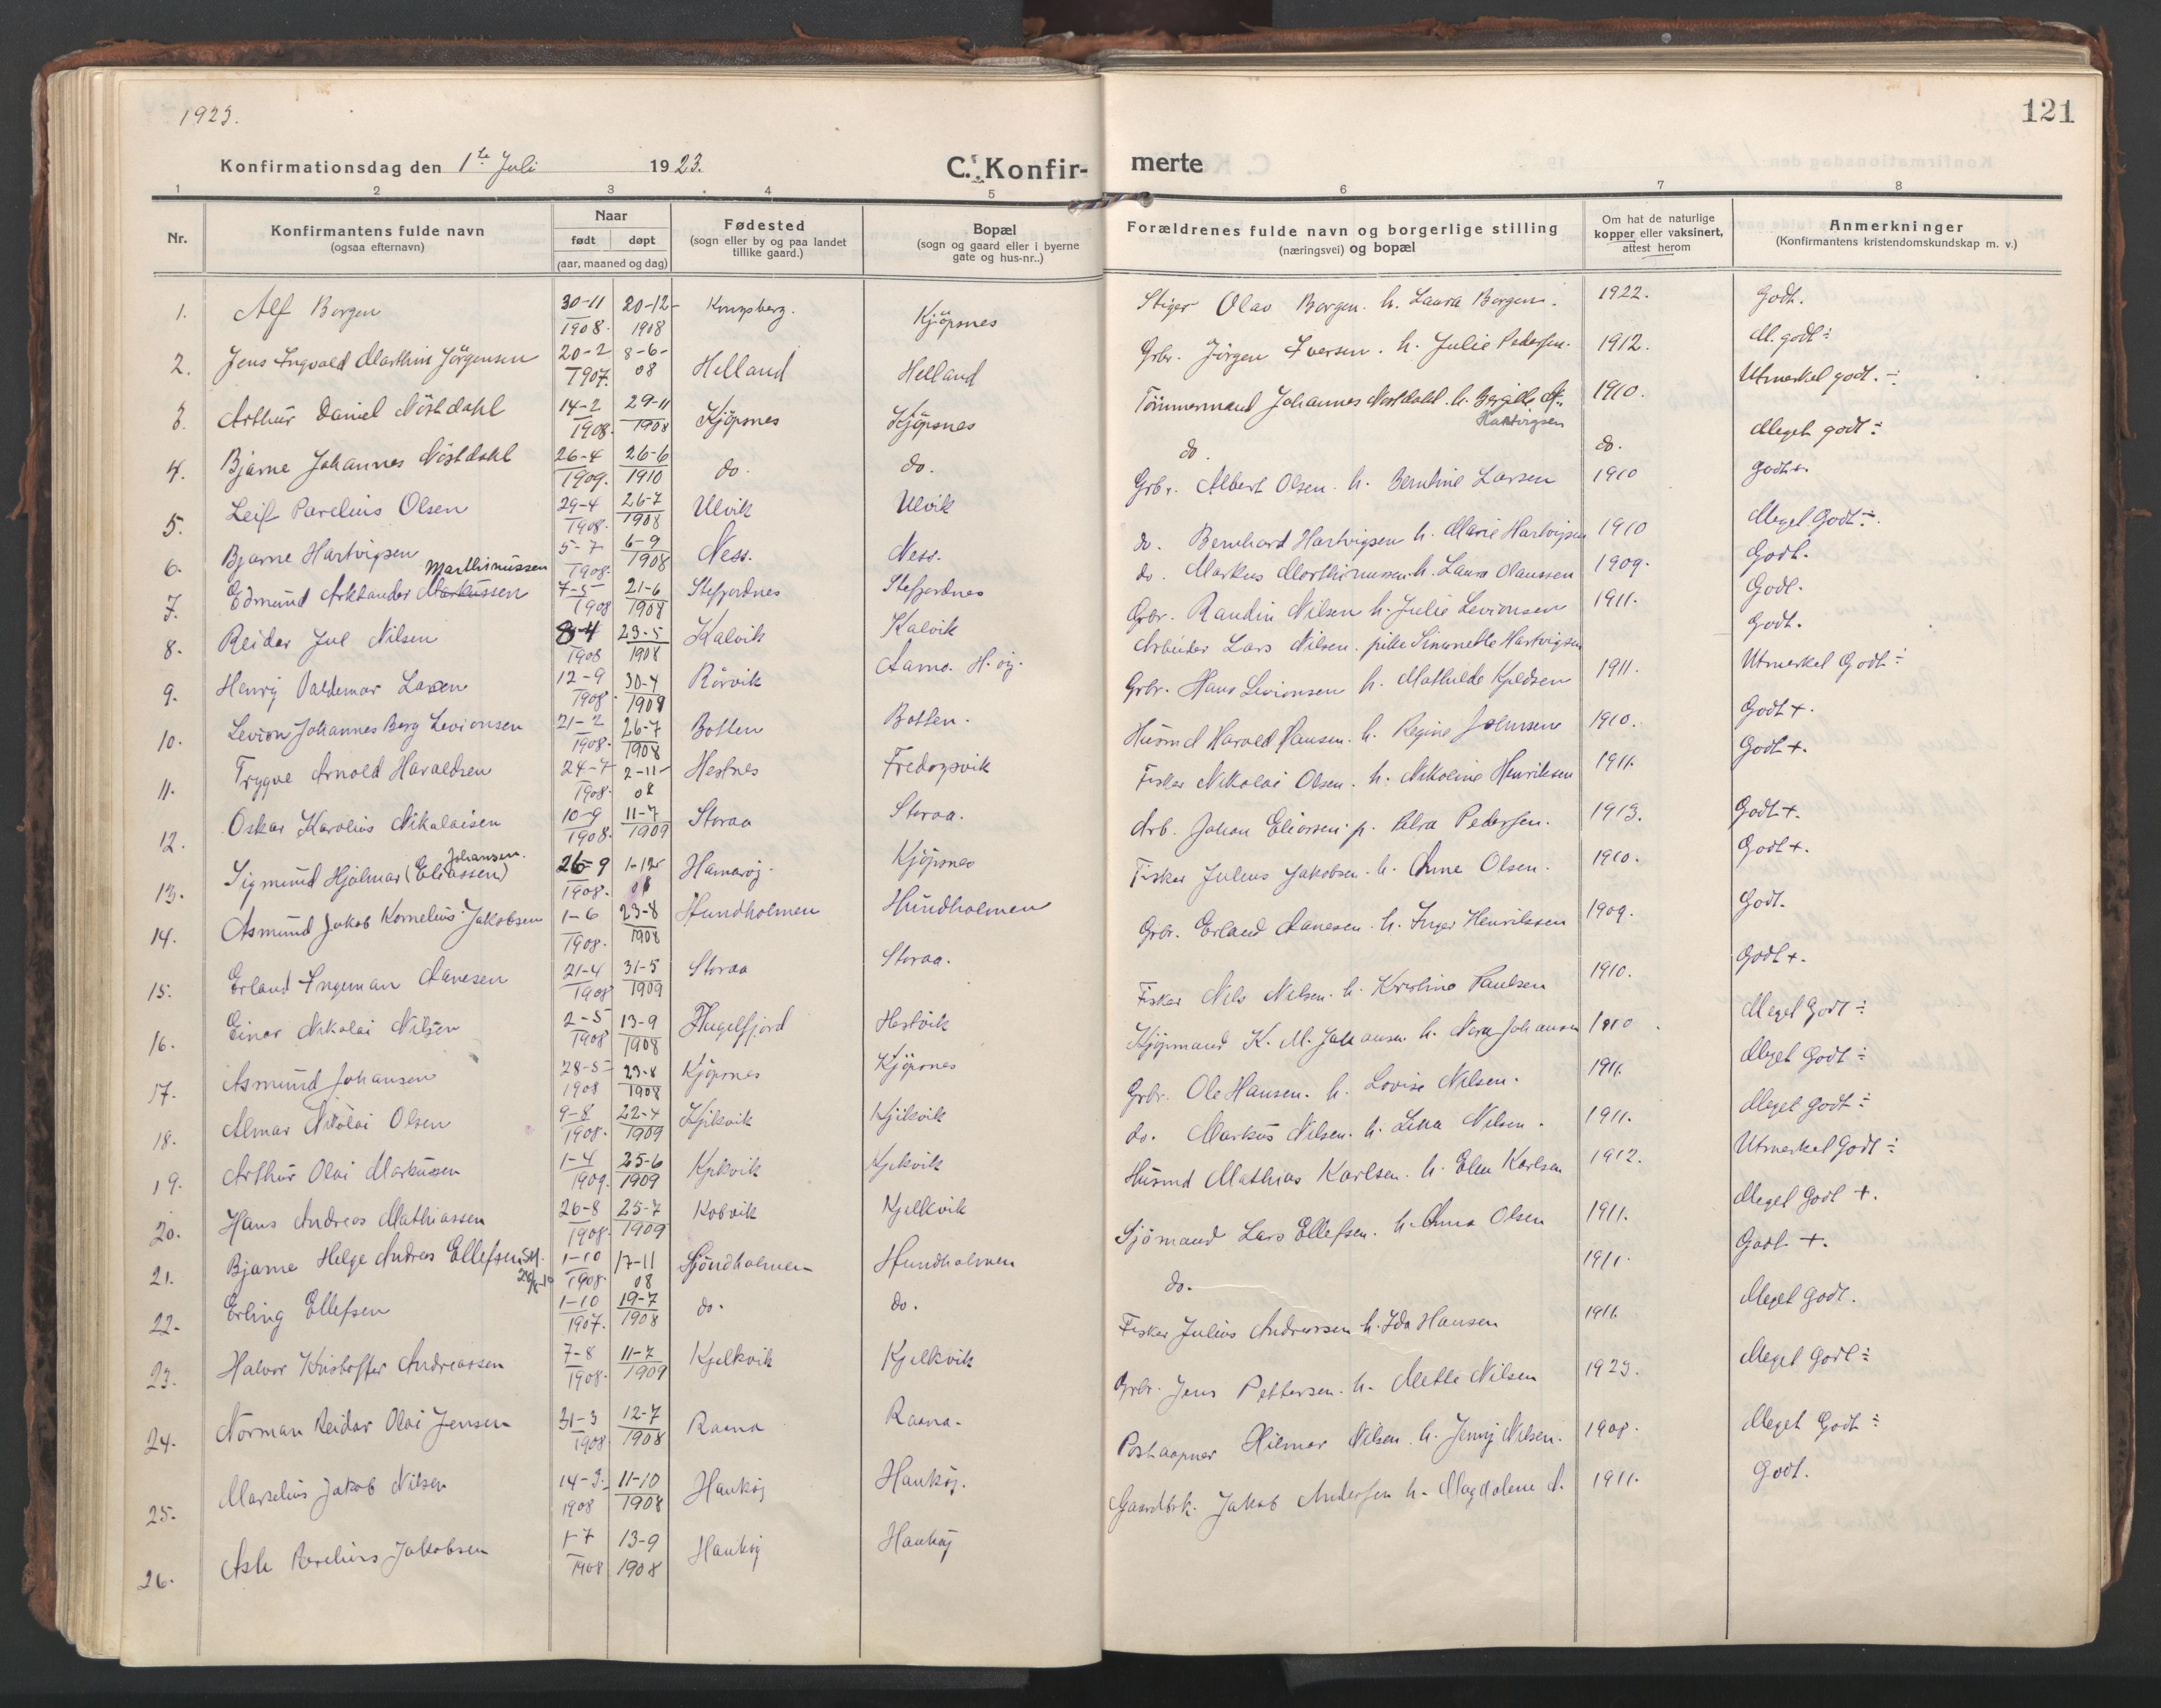 1923.
121
Konfirmationsdag den 1ste Juli 1923. C. Konfir- merte
1 2 3 4 5 6 7 8
Nr. Konfirmantens fulde navn (ogsaa efternavn) Naar født døpt (aar, maaned og dag) Fødested (sogn eller by og paa landet tillike gaard.) Bopæl (sogn og gaard eller i byerne gate og hus-nr..) Forældrenes fulde navn og borgerlige stilling (næringsvei) og bopæl Om hat de naturlige kopper eller vaksinert, attest herom Anmerkninger (Konfirmantens kristendomskundskap m. v.)
1. Alf Borgen 30-11 1908. 20-12- 1908 Kongsberg. Kjöpsnes Stiger Olav Borgen. h. Laura Borgen. 1922. Godt.
2. Jens Ingvald Marthin Jörgensen 20-2 1907. 8-6- 08 Helland Helland Grbr. Jörgen Iversen. h. Julie Pedersen. 1912. M. godt ÷
3. Arthur Daniel Nöstdahl 14-2 1908. 29-11 1908 Kjöpsnes Kjöpsnes Tömmermand Johannes Nöstdahl. h. Hartvigsen 1910. Utmerket godt. ÷
4. Bjarne Johannes Nöstdahl 26-4 1909. 26-6 1910 do. do. do. do. Meget godt ÷
5. Leif Parelius Olsen 29-4 1908. 26-7 1908 Ulvik Ulvik Grbr. Albert Olsen. h. Berntine Larsen 1910 Godt+.
6. Bjarne Hartvigsen 5-7 1908. 6-9 1908 Ness. Ness. do. Bernhard Hartvigsen h. Marie Hartvigsen 1910 Meget Godt ÷.
7. Edmund Arktander Markussen Marthinussen 7-5 1908 21-6 1908 Stefjordnes Stefjordnes do. Markus Marthinussen. h. Laura Olaussen 1909. Godt.
8. Reidar Jul Nilsen 8-4 1908 23-5 1908 Kalvik Kalvik Grbr. Randin Nilsen h. Julie Levionsen 1911. Godt.
9. Henry Valdemar Larsen 12-9 1908. 30-4 1909 Rörvik Aamo. H. öy. Arbeider Lars Nilsen. pike Simonette Hartvigsen Godt.
10. Levion Johannes Berg Levionsen 21-2 1908. 26-7 1908 Botten Botten. Grbr. Hans Levionsen h. Mathilde Kjeldsen 1911. Utmerket Godt ÷
11. Trygve Arnold Haraldsen 24-7 1908. 2-11- 08 Hestnes Fredagsvik Husmd Harald Hansen. h. Regine Johnsen 1910. Godt +.
12. Oskar Karolius Nikolaisen 10-9 1908. 11-7 1909 Storaa Storaa. Fisker Nikolai Olsen. h. Nikoline Henriksen 1911. Godt +.
13. Sigmund Hjalmar (Eliassen) Johansen. 26-9 1908. 1-12- 08 Hamaröy. Kjöpsnes Arb. Johan Eliassen. p. Petra Pedersen. 1913. Godt +.
14. Asmund Jakob Kornelius Jakobsen 1-6 1908. 23-8 1908 Hundholmen Hundholmen Fisker Julius Jakobsen. h. Anne Olsen. 1910. Godt +.
15. Erland Ingeman Aanesen 21-4 1908 31-5 1909 Storaa Storaa. Grbr. Erland Aanesen. h. Inger Henriksen 1909. Godt.
16. Einar Nikolai Nilsen 2-5 1908 13-9 1908 Fugelfjord Hestvik Fisker Nils Nilsen. h. Kristine Paulsen 1910. Godt +.
17. Asmund Johansen 28-5- 1908 23-8 1908 Kjöpsnes Kjöpsnes Kjöpmand K. M. Johansen. h. Nora Johansen 1910. Meget Godt ÷
18. Almar Nikolai Olsen 9-8 1908. 22-4 1909 Kjelkvik Kjelkvik Grbr. Ole Hansen. h. Lovise Nilsen. 1911. Meget Godt ÷
19. Arthur Olai Markussen 1-4 1909. 25-6 1909 Kjelkvik Kjelkvik do. Markus Nilsen. h. Lina Nilsen. 1911. Meget Godt ÷
20. Hans Andreas Mathiassen 26-8 1908. 25-7 1909 Kobvik Kjelkvik Husmd Mathias Karlsen. h. Elen Karlsen 1912. Utmerket Godt ÷
21. Bjarne Helge Andreas Ellefsen 1-10 1908. 17-11 08 Hundholmen Hundholmen Sjömand Lars Ellefsen. h. Anna Olsen 1911. Meget Godt +.
22. Erling Ellefsen 1-10 1907. 19-7 1908 do. do. do. 1911. Godt +.
23. Halvor Kristoffer Andreassen 7-8 1908. 11-7 1909 Kjelkvik Kjelkvik Fisker Julius Andreassen h. Ida Hansen 1911. Meget Godt.
24. Norman Reidar Olai Jensen 31-3 1908. 12-7 1908 Raana Raana. Grbr. Jens Pettersen. h. Mette Nilsen 1923. Meget Godt ÷
25. Marselius Jakob Nilsen 14-3. 1908 11-10 1908 Hauköy Hauköy. Postaapner Hilmar Nilsen. h. Jenny Nilsen. 1908. Meget Godt ÷
26. Ask Parelius Jakobsen 1-7 1908 13-9 1908 Hauköy Hauköy Gaardbrk. Jakob Andersen h. Magdalene A. 1911. Godt.